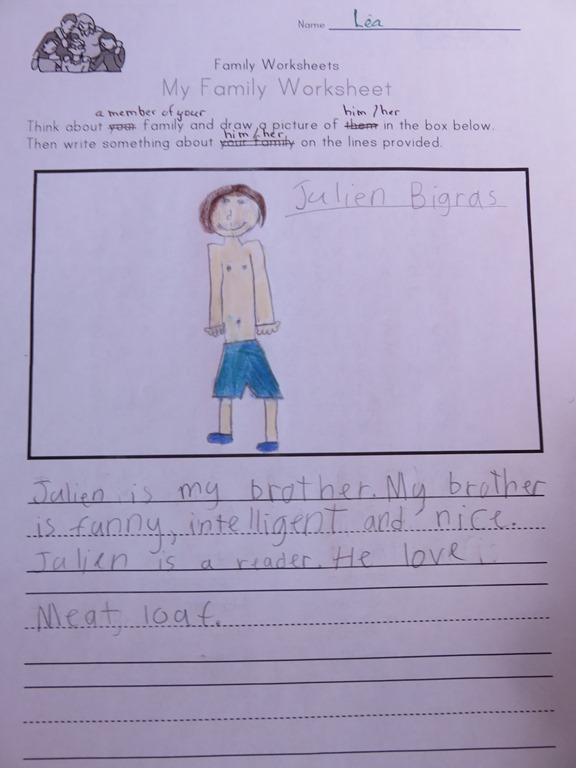 Name Léa
Family Worksheets
My Family Worksheet
a member of your him/her
Think about your family and draw a picture of them in the box below.
him/her
Then write something about your family on the lines provided.
Julien Bigras
Julien is my brother. My brother
is funny, intelligent and nice.
Julien is a reader. He love
Meat, loaf.